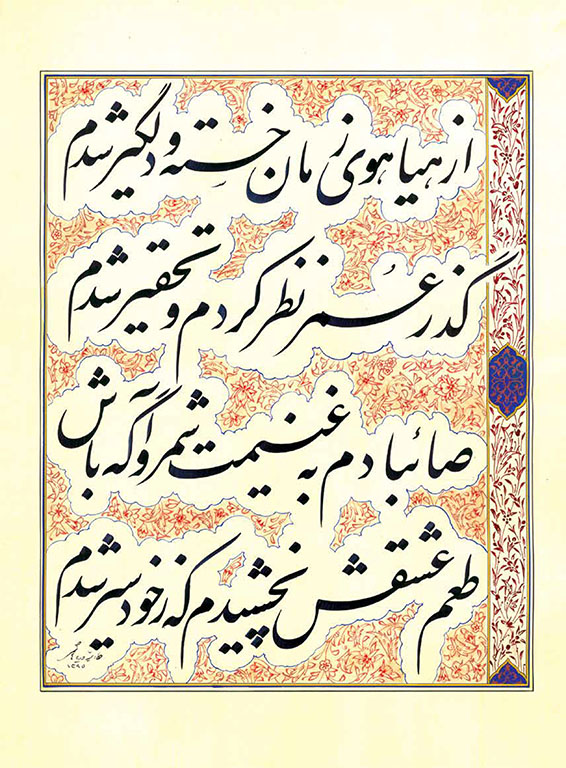 از هیاهوی زمان خسته و دلگیر شدم
گذر عمر نظر کردم و تحقیر شدم
صائبا دم به غنیمت شمر و آگه باش
طعم عشقش نچشیدم که ز خود سیر شدم
۱۳۸۵